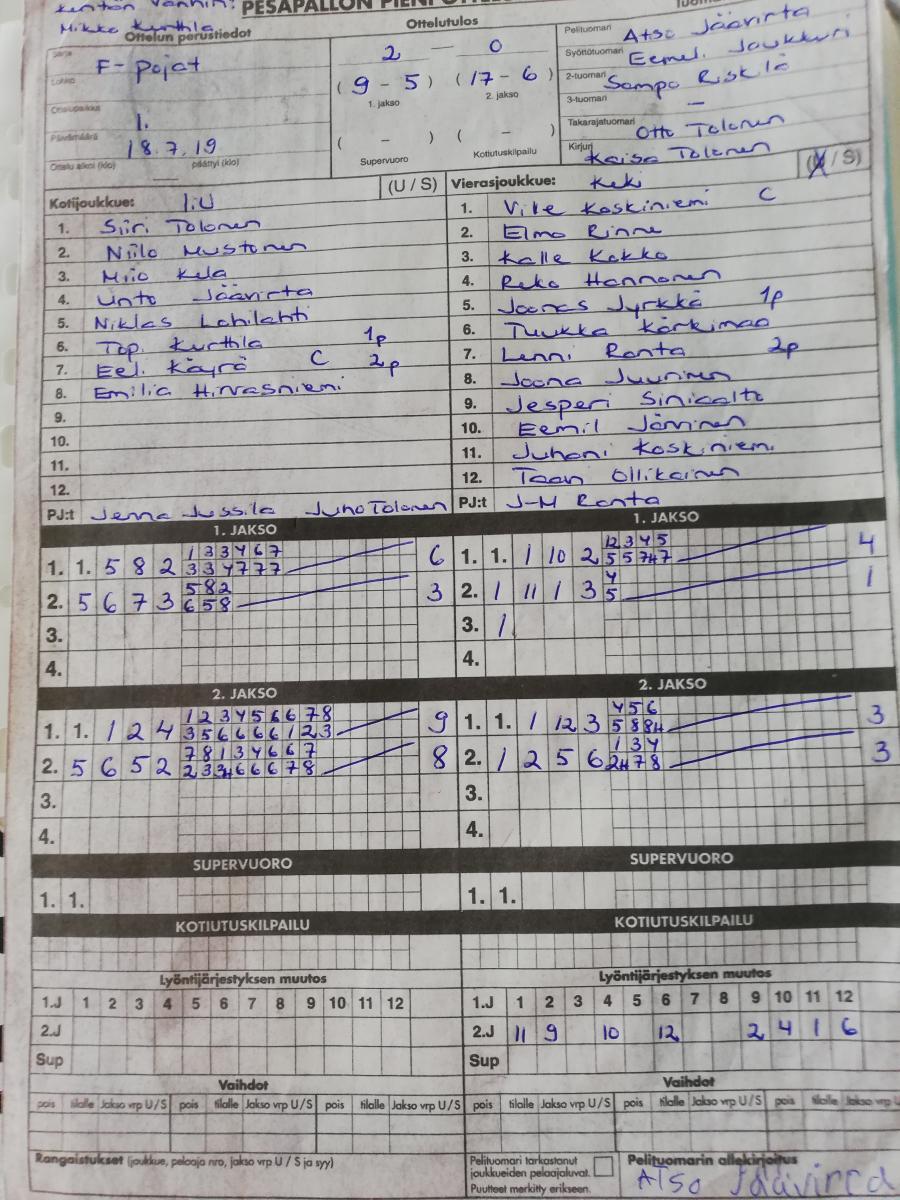 Kentän vanhin:
Mikko Kurthla
PESÄPALLON
Ottelun perustiedot
Ottelutulos
F-pojat
Lohko
1.
Päivämäärä
18.7.19
Ottelu alkoi (klo) päättyi (klo)
2 — 0
(9 - 5) (17 - 6)
1. jakso 2. jakso
( - ) ( - )
Supervuoro Kotiutuskilpailu
Pelituomari Atso Jäävirta
Syöttötuomari Eemel. Joukkuri
2-tuomari Sampo Riskilä
3-tuomari —
Takarajatuomari Otto Tolonen
Kirjuri Kaisa Tolonen
Kotijoukkue: IiU (U / S)
1. Siiri Tolonen
2. Niilo Mustonen
3. Miio Kela
4. Unto Jäävirta
5. Niklas Lahilahti
6. Top. Kurthla 1p
7. Eel. Käyrä C 2p
8. Emilia Hirvasniemi
9.
10.
11.
12.
PJ:t Jenna Jussila Juho Tolonen
Vierasjoukkue: Keki (U / S)
1. Vile Koskiniemi C
2. Elmo Rinne
3. Kalle Kokko
4. Reko Hannonen
5. Joonas Jyrkkä 1p
6. Tuukka Kärkimaa
7. Lenni Ranta 2p
8. Joona Juurinen
9. Jesperi Sinisalto
10. Eemil Järvinen
11. Juhani Koskiniemi
12. Taan Ollikainen
PJ:t J-M Ranta
1. JAKSO
1 3 3 4 6 7
1. 1. 5 8 2 3 3 4 7 7 7 6
5 8 2
2. 5 6 7 3 6 5 8 3
3.
4.
1. JAKSO
12 3 4 5
1. 1. 1 10 2 5 5 7 4 7 4
4
2. 1 11 1 3 5 1
3. 1
4.
2. JAKSO
1 2 3 4 5 6 6 7 8
1. 1. 1 2 4 3 5 6 6 6 6 1 2 3 9
7 8 1 3 4 6 6 7
2. 5 6 5 2 2 3 3H 6 6 6 7 8 8
3.
4.
2. JAKSO
4 5 6
1. 1. 1 12 3 5 8 8H 3
1 3 4
2. 1 2 5 6 2H 7 8 3
3.
4.
SUPERVUORO
1. 1.
SUPERVUORO
1. 1.
KOTIUTUSKILPAILU
KOTIUTUSKILPAILU
Lyöntijärjestyksen muutos
1.J 1 2 3 4 5 6 7 8 9 10 11 12
2.J
Sup
Lyöntijärjestyksen muutos
1.J 1 2 3 4 5 6 7 8 9 10 11 12
2.J 11 9 10 12 2 4 1 6
Sup
Vaihdot
pois tilalle Jakso vrp U/S pois tilalle Jakso vrp U/S pois tilalle Jakso vrp U/S
Vaihdot
pois tilalle Jakso vrp U/S pois tilalle Jakso vrp U/S pois tilalle Jakso vrp U
Rangaistukset (joukkue, pelaaja nro, jakso vrp U / S ja syy)
Pelituomari tarkastanut
joukkueiden pelaajaluvat.
Puutteet merkitty erikseen.
Pelituomarin allekirjoitus
Atso Jäävirra